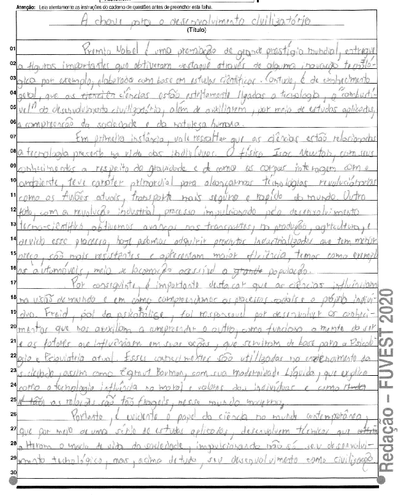 Atenção: Leia atentamente as instruções do caderno de questões antes de preencher esta folha.
A chave para o desenvolvimento civilizatório
(Título)
01 Premio Nobel é uma premiação de grande prestígio mundial, entregue
02 a alguns importantes que obtiveram destaque através de alguma inovação
03 por exemplo, elaborada com base em estudos científicos. Contudo, é de conhecimento
04 geral, que as ciências estão estritamente ligadas a tecnologia, a
05 do desenvolvimento civilizatório, além de auxiliarem, por meio de estudos aplicados,
06 a compreensão da sociedade e da natureza humana.
07 Em primeira instância, vale ressaltar que as ciências estão relacionadas
08 a tecnologia presente na vida dos indivíduos. O físico Isac Newton, com seus
09 conhecimentos a respeito da gravidade e de como os corpos interagem com o
10 ambiente, teve caráter primordial para alcançarmos tecnologias revolucionárias
11 como os aviões atuais, transporte mais seguro e rápido do mundo. Outro
12 fato, com a revolução industrial, processo impulsionado pelo desenvolvimento
13 técnico-científico, obtivemos avanços nos transportes, na produção, agricultura, e
14 devido esse processo, hoje podemos adquirir produtos industrializados que tem menor
15 preço, são mais resistentes e apresentam maior eficiência, temos como exemplo
16 os automóveis, meio de locomoção acessível a grande população.
17 Por conseguinte, é importante destacar que as ciências influenciam
18 na visão de mundo e em como compreendemos os processos sociais e o próprio
19 Freid, pai da psicanálise, foi responsável por desenvolver os conheci-
20 mentos que nos auxiliam a compreender o outro, como funciona a mente do ser
21 e os fatores que influenciam em suas ações, que serviram de base para a Psicolo-
22 gia e Psiquiatria atual. Esses conhecimentos são utilizados no entendimento da
23 sociedade, assim como Zigmut Bauman, com sua modernidade Líquida, que explica
24 como a tecnologia influência na moral e valores dos indivíduos e como
25 as relações são tão frageis, nesse mundo moderno.
26 Portanto, é evidente o papel da ciência no mundo contemporâneo,
27 que por meio de uma série de estudos aplicados, desenvolvem técnicas que
28 alteram o modo de vida da sociedade, impulsionando não só seu desenvolvi-
29 mento tecnológico, mas, acima de tudo, seu desenvolvimento como civilização.
30
Redação – FUVEST 2020